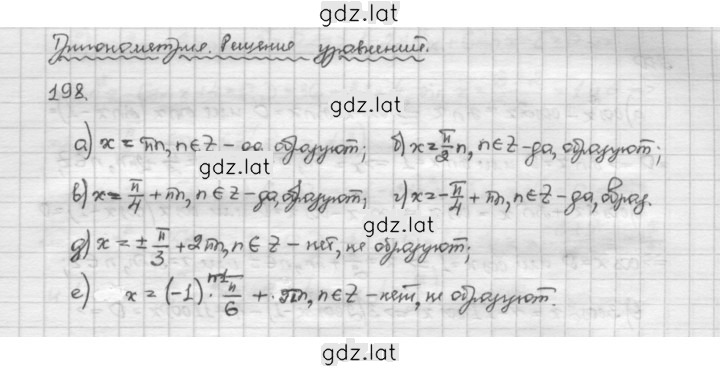 gdz.lat
Тригонометрия. Решение уравнений.
198.
gdz.lat
а) x = πn, n∈Z – да образуют; б) x = π/2 n, n∈Z – да, образуют;
gdz.lat
в) x = π/4 + πn, n∈Z – да, образуют; г) x = -π/4 + πn, n∈Z – да, образ.
gdz.lat
д) x = ± π/3 + 2πn, n∈Z – нет, не образуют;
е) x = (-1)ⁿ⁺¹ · π/6 + πn, n∈Z – нет, не образуют.
gdz.lat